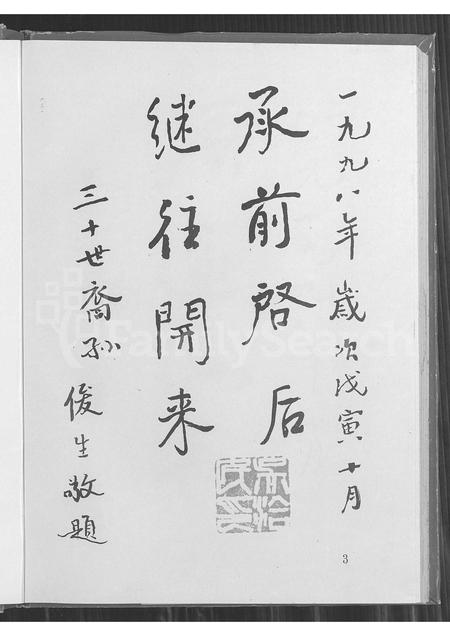 一九九八年 歲次戊寅十月
承前啓后
继往開来
三十世裔孙 俊生敬題
3
FamilySearch